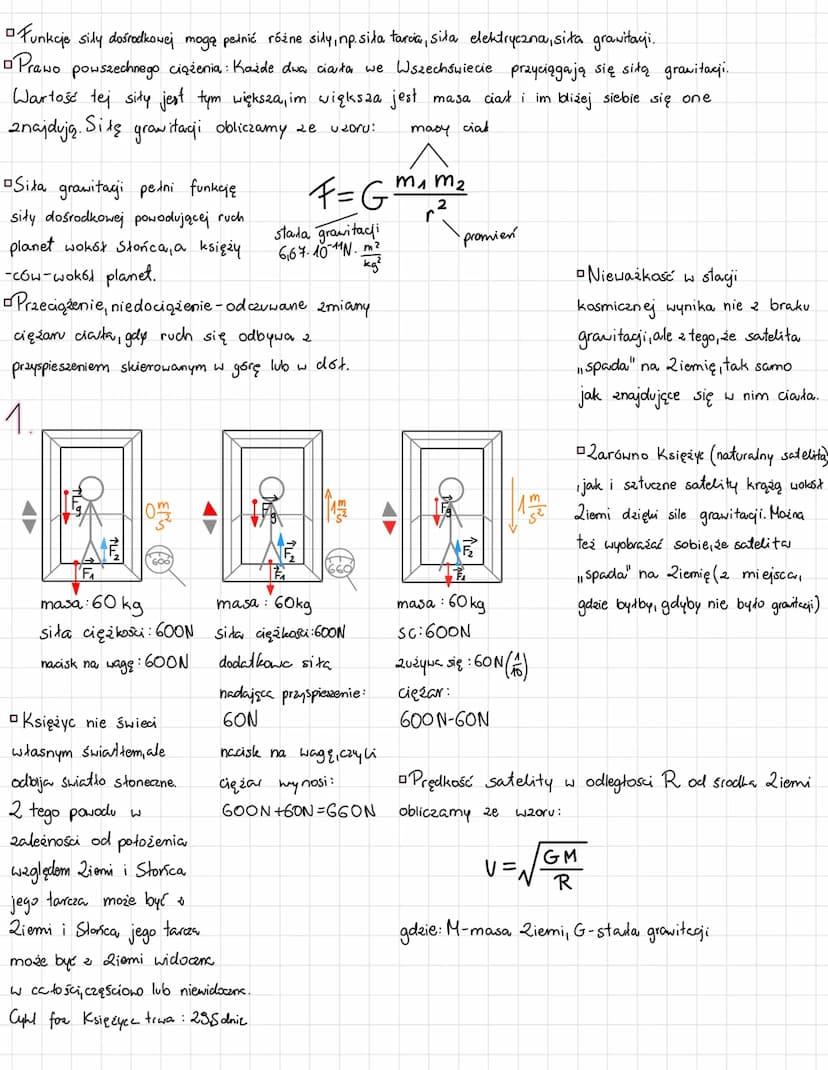 Funkcję siły dośrodkowej mogą pełnić różne siły, np. siła tarcia, siła elektryczna, siła grawitacji.
Prawo powszechnego ciążenia: Każde dwa ciała we Wszechświecie przyciągają się siłą grawitacji.
Wartość tej siły jest tym większa, im większa jest masa ciał i im bliżej siebie się one
znajdują. Siłę grawitacji obliczamy ze wzoru:
masy ciał
F = G m₁ m₂ / r²
stała grawitacji
6,67·10⁻¹¹N · m²/kg²
promień
Siła grawitacji pełni funkcję
siły dośrodkowej powodującej ruch
planet wokół Słońca, a księży
-ców-wokół planet.
Przeciążenie, niedociążenie - odczuwane zmiany
ciężaru ciała, gdy ruch się odbywa z
przyspieszeniem skierowanym w górę lub w dół.
Nieważkość w stacji
kosmicznej wynika nie z braku
grawitacji, ale z tego, że satelita
„spada" na Ziemię, tak samo
jak znajdujące się w nim ciała.
Zarówno Księżyc (naturalny satelita)
, jak i sztuczne satelity krążą wokół
Ziemi dzięki sile grawitacji. Można
też wyobrażać sobie, że satelita
„spada" na Ziemię (z miejsca,
gdzie byłby, gdyby nie było grawitacji)
1.
Fg
F₂
F₁
0 m/s²
600
masa: 60 kg
siła ciężkości: 600N
nacisk na wagę: 600N
Fg
F₂
F₁
1 m/s²
660
masa: 60kg
siła ciężkości: 600N
dodatkowa siła
nadająca przyspieszenie:
60N
nacisk na wagę, czyli
ciężar wynosi:
600N+60N=660N
Fg
F₂
F₁
1 m/s²
masa: 60 kg
SC: 600N
zużywa się: 60N (1/10)
ciężar:
600N-60N
Księżyc nie świeci
własnym światłem, ale
odbija światło słoneczne.
Z tego powodu w
zależności od położenia
względem Ziemi i Słońca
jego tarcza może być z
Ziemi i Słońca, jego tarcza
może być z Ziemi widoczna
w całości, częściowo lub niewidoczna.
Cykl faz Księżyca trwa: 29,5 dnia
Prędkość satelity w odległości R od środka Ziemi
obliczamy ze wzoru:
v = √(GM/R)
gdzie: M-masa Ziemi, G-stała grawitacji